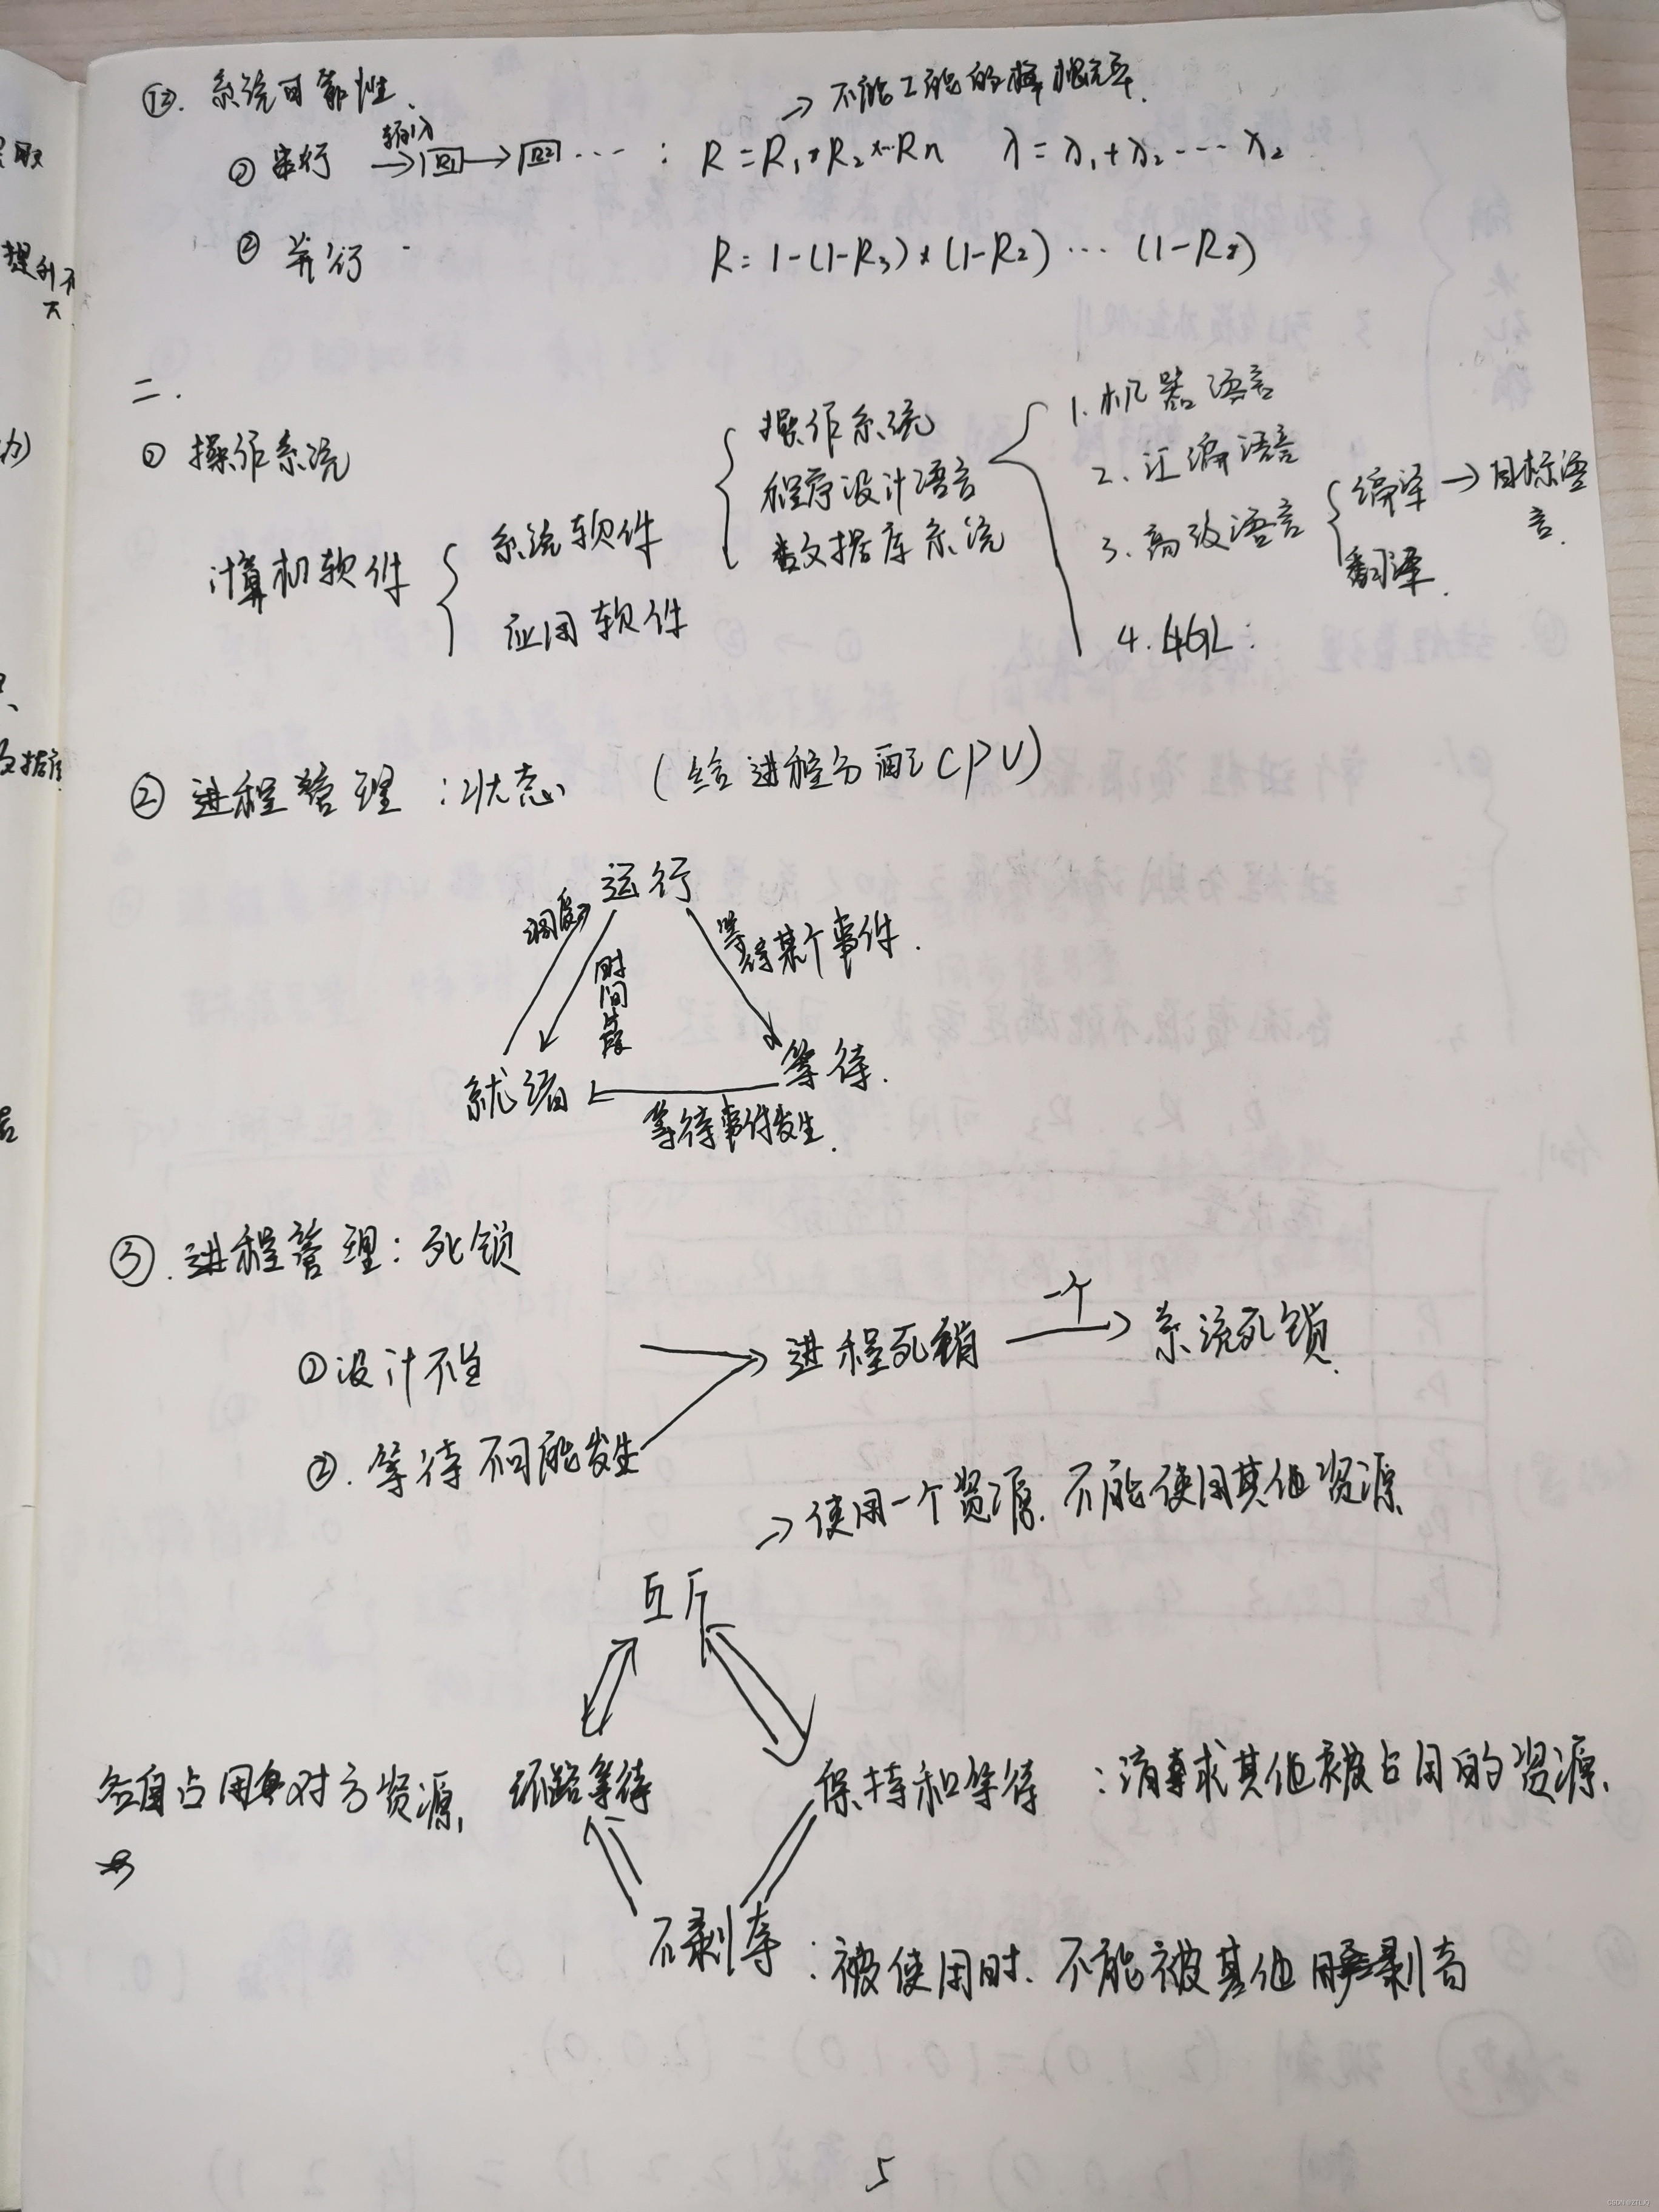 ⑫. 系统可靠性.
→ 不能工作的概率.
① 串行 输入 → R1 → R2 ··· : R = R₁ * R₂ × ·· Rn λ = λ₁ + λ₂ ··· λ₂
② 并行 R = 1-(1-R₃)×(1-R₂) ··· (1-R₈)
二.
① 操作系统
计算机软件
系统软件
应用软件
操作系统
程序设计语言
数据库系统
1. 机器语言
2. 汇编语言
3. 高级语言
4. 4GL:
编译 → 目标语言.
翻译.
② 进程管理 : 状态 (给进程分配CPU)
运行
调度
时间片
等待某个事件.
就绪
等待.
等待事件发生.
③. 进程管理: 死锁
① 设计不当
②. 等待不可能发生
进程死锁 一个 → 系统死锁.
→ 使用一个资源. 不能使用其他资源
互斥
各自占用对方资源, 环路等待
保持和等待 : 请求其他被占用的资源.
不剥夺 : 被使用时. 不能被其他剥夺
5